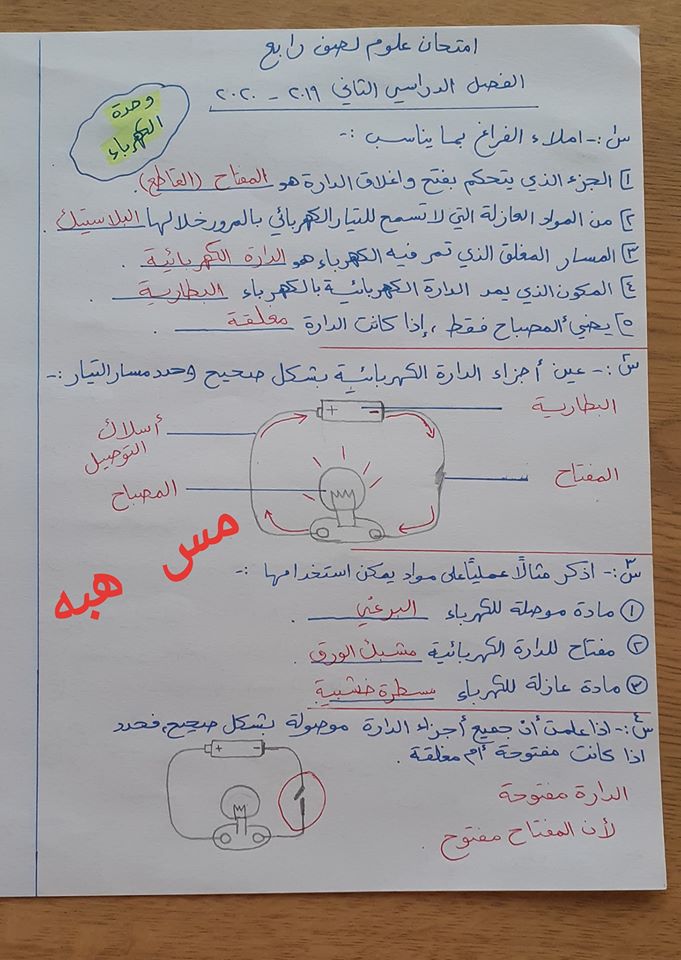 امتحان علوم لصف رابع
الفصل الدراسي الثاني ٢٠١٩ - ٢٠٢٠
وحدة
الكهرباء
س١:- املاء الفراغ بما يناسب :-
١] الجزء الذي يتحكم بفتح واغلاق الدارة هو المفتاح (القاطع)
٢] من المواد العازلة التي لا تسمح للتيار الكهربائي بالمرور خلالها البلاستيك.
٣] المسار المغلق الذي تمر فيه الكهرباء هو الدارة الكهربائية.
٤] المكون الذي يمد الدارة الكهربائية بالكهرباء البطارية.
٥] يضيء المصباح فقط، إذا كانت الدارة مغلقة.
س٢:- عين أجزاء الدارة الكهربائية بشكل صحيح وحدد مسار التيار:-
البطارية
+ -
أسلاك
التوصيل
المفتاح
المصباح
مس هبه
س٣:- اذكر مثالًا عمليًا على مواد يمكن استخدامها :-
① مادة موصلة للكهرباء البرغي.
② مفتاح للدارة الكهربائية مشبك الورق
③ مادة عازلة للكهرباء مسطرة خشبية
س٤:- اذا علمت أن جميع أجزاء الدارة موصولة بشكل صحيح، فحدد
اذا كانت مفتوحة أم مغلقة.
+ -
الدارة مفتوحة
لأن المفتاح مفتوح